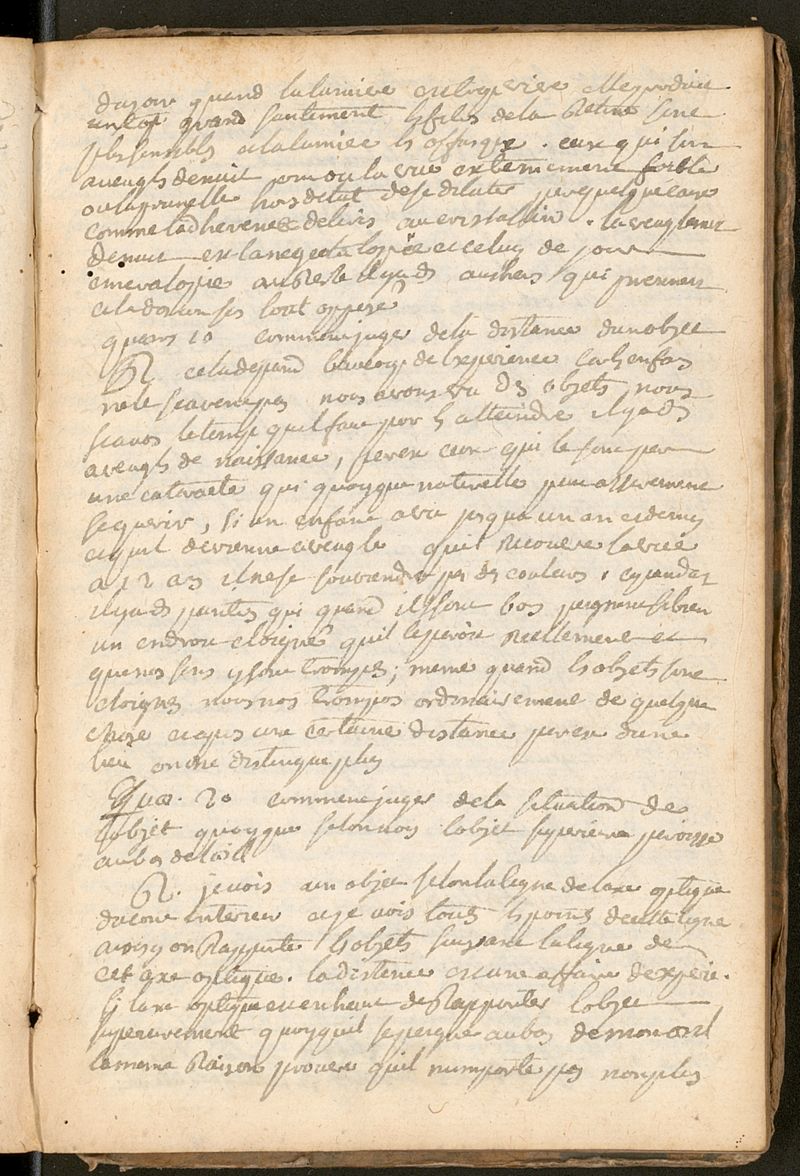 quand la lumiere est vive elle produit
un trop grand sentiment les files de la Retine sont
plus sensibles et la lumiere les offusque. ceux qui sont
aveugles de nuit ont ou la vue extremement foible
ou la prunelle hors detat de se dilater par quelque cause
comme ladherence de liris au cristallin. laveuglement
de nuit est la nectalopie et celuy de jour
emeralopie au Reste il y a ds autheurs qui prennent
cela dans un sens tout oppose
quaeres 10 comment juger de la distance dun objet
R cela depend beaucoup de lexperience car ls enfans
ne le scavent pas nous avons vu ds objets nous
scavons le temps quil faut pour ls atteindre il y a ds
aveugls de naissance, per ex ceux qui le sont par
une cataracte qui quoyque naturelle peut assurement
se guerir, si un enfant a vu jusqua un an et demy
et quil devienne aveugle quil Recouvre la vue
a 12 ans il ne se souviendra pas des couleurs. cependant
il y a ds peintres qui quand ils sont bons peignent si bien
un endroit eloigné quil le paroit Reellement et
que nos sens y sont trompes; meme quand ls objets sont
eloignes nous nos trompons ordinairement de quelque
chose et apres une certaine distance per ex dune
lieu on ne distingue plus
Quae. 20 comment juger de la situation de
lobjet quoyque selon nous lobjet superieur paroisse
au bas de loeil
R. je vois un objet selon la ligne de laxe optique
du cone interieur et je vois tous ls points de cette ligne
ainsy on Rapporte ls objets suivant la ligne de
cet axe optique. la distance est une affaire dexperie.
si laxe optique est en haut de Rapporter lobjet
superieurement quoyquil se peigne au bas de mon oeil
la meme Raison prouve quil nimporte pas non plus